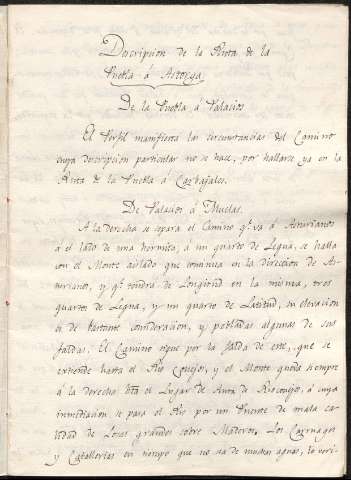 Descripcion de la Ruta de la
Puebla á Astorga
De la Puebla á Palacios
El Perfil manifiesta las circunstancias del Camino
cuya descripcion particular no se hace, por hallarse ya en la
Ruta de la Puebla á Carbajales.
De Palacios á Muelas.
A la derecha se separa el Camino qe. vá á Asturianos
á el lado de una hermita; á un quarto de Legua, se halla
con el Monte aislado que continua en la direccion de As-
turianos, y qe. tendrá de Longitud en la misma, tres
quartos de Legua, y un quarto de Latitud, su elevacion
es de bastante consideracion, y pobladas algunas de sus
faldas. El Camino sigue por la falda de este, que se
extiende hasta el Rio Conejos, y el Monte queda siempre
á la derecha hta. el Lugar de Rioconejos, á cuya
inmediacion se pasa el Rio por un Puente de mala ca-
lidad de Losas grandes sobre Maderos. Los Carruages
y Caballerias en tiempo que no vá de muchas aguas, lo veri-